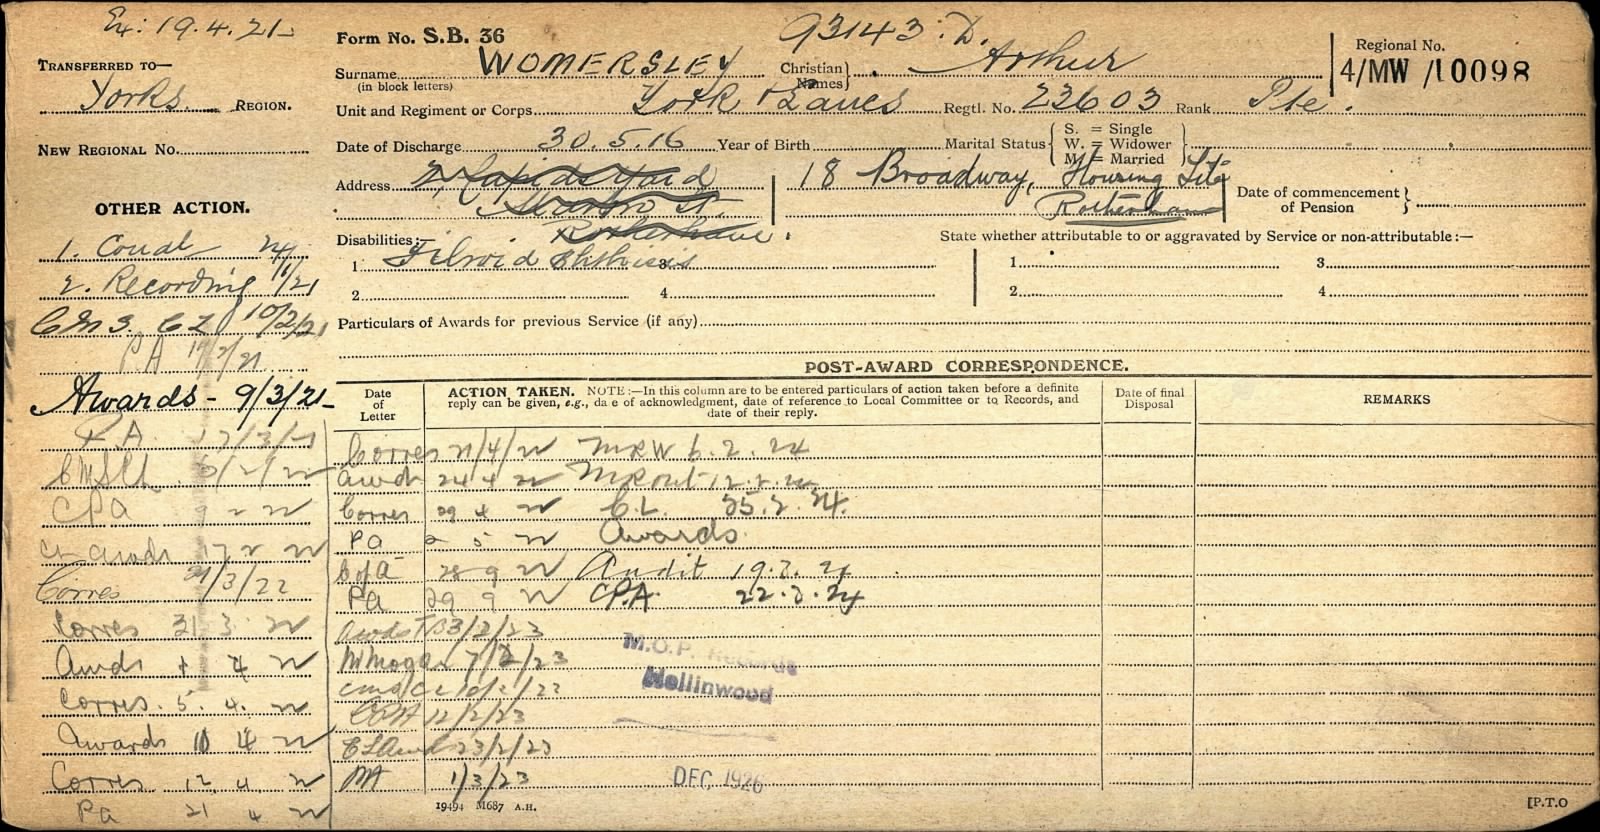 Ex: 19.4.21
Form No. S.B. 36
93143.D.
TRANSFERRED TO—
Yorks REGION.
NEW REGIONAL No.
Surname (in block letters) WOMERSLEY
Christian Names} Arthur
Regional No.
4/MW/10098
Unit and Regiment or Corps York & Lancs Regtl. No. 23603 Rank Pte.
Date of Discharge 30.5.16 Year of Birth Marital Status { S. = Single
W. = Widower
M. = Married }
Address
Yard
St.
Rotherham.
18 Broadway, Housing Site
Rotherham
Date of commencement of Pension }
Disabilities:—
1 Fibroid Phthisis 3
2 4
State whether attributable to or aggravated by Service or non-attributable:—
1 3
2 4
Particulars of Awards for previous Service (if any)
OTHER ACTION.
1. Coual 24/
2. Recording 1/21
CMS. CL 10/2/21
PA 17/2/21
Awards - 9/3/21
P.A. 17/3/21
9 2 22
CPA
17 2 22
Corres 21/3/22
Corres 31 3 22
Awds 1 4 22
Corres. 5. 4. 22
Awards 10 4 22
Corres 12. 4. 22
Pa 21 4 22
POST-AWARD CORRESPONDENCE.
Date of Letter
ACTION TAKEN. NOTE:—In this column are to be entered particulars of action taken before a definite
reply can be given, e.g., date of acknowledgment, date of reference to Local Committee or to Records, and
date of their reply.
Date of final Disposal
REMARKS
Corres 21/4/22 MRW 6.2.24
Awd 24 4 22 MR out 12.2.24
Corres 29 4 22 C.L. 25.2.24.
Pa 2 5 22 Awards
28 9 22 Audit 19.3.24
Pa 29 9 22 CPA 22.3.24
Awds TB 3/2/23
7/2/23
10/2/23
12/2/23
CL Awd 23/2/23
PA 1/3/23
M.O.P. Records
Hollinwood
DEC. 1926
19494 M687 A.H.
[P.T.O